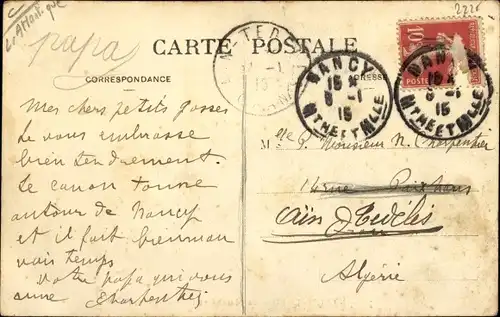 papa
CARTE POSTALE
CORRESPONDANCE
ADRESSE
NANCY
15
8 -1
15
MTHE ET MLLE
NANCY
8 -1
15
MTHE ET MLLE
10
Mes chers petits gosses
Je vous embrasse
bien tendrement.
Le canon tonne
autour de Nancy
et il fait bien mau
vais temps
Votre papa qui vous
aime Charpentier
M Monsieur N. Charpentier
14 rue
Aïn Tedeles
Algérie